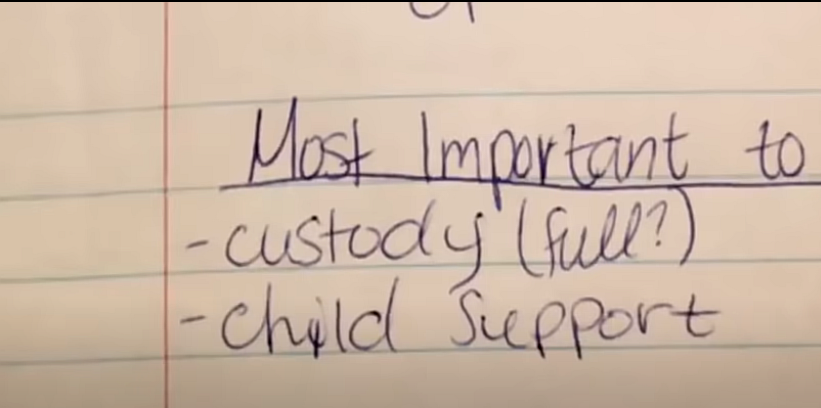 Most Important to
-custody (full?)
-child support